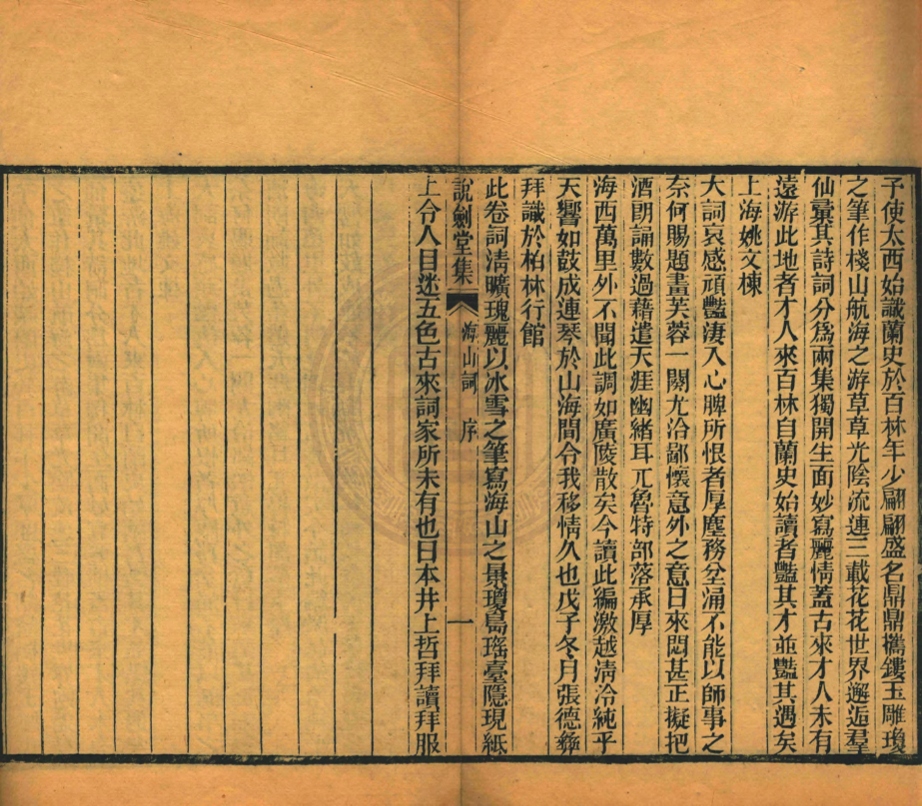 予使太西始識蘭史於百林年少翩翩盛名鼎鼎攜鏤玉雕瓊
之筆作棧山航海之游草草光陰流連三載花花世界邂逅羣
仙彙其詩詞分爲兩集獨開生面妙寫麗情蓋古來才人未有
遠游此地者才人來百林自蘭史始讀者豔其才並豔其遇矣
上海姚文棟
大詞哀感頑豔淒入心脾所恨者厚塵務坌涌不能以師事之
奈何賜題畫芙蓉一闋尤洽鄙懷意外之意日來悶甚正擬把
酒朗誦數過藉遣天涯幽緒耳兀魯特部落承厚
海西萬里外不聞此調如廣陵散矣今讀此編激越淸泠純乎
天響如鼓成連琴於山海間令我移情久也戊子冬月張德彝
拜識於柏林行館
此卷詞淸曠瑰麗以冰雪之筆寫海山之景瓊島瑤臺隱現紙
說劍堂集 海山詞 序 一
上令人目迷五色古來詞家所未有也日本井上哲拜讀拜服